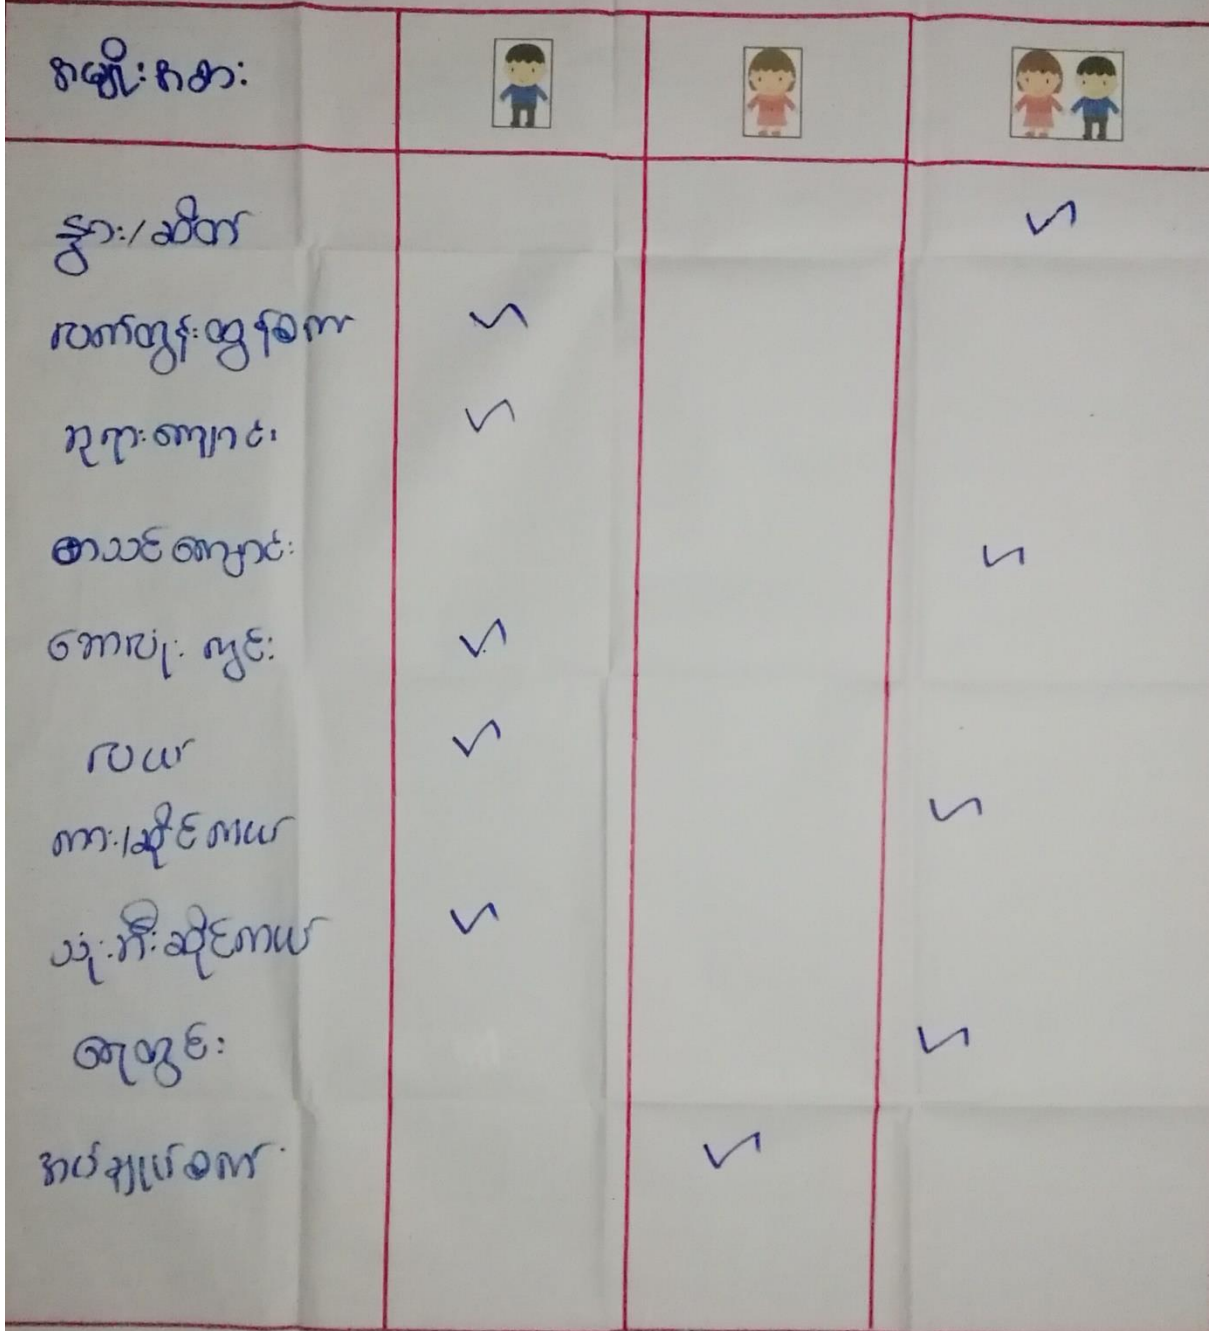 အမျိုးအစား
နွား/ဆိတ်
လက်တွန်းထွန်စက်
ဘုရားကျောင်း
စာသင်ကျောင်း
ဘောလုံးကွင်း
လယ်
ကား/ဆိုင်ကယ်
သုံးဘီးဆိုင်ကယ်
ရေတွင်း
အပ်ချုပ်စက်